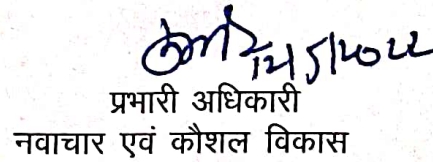 14/5/2022
प्रभारी अधिकारी
नवाचार एवं कौशल विकास